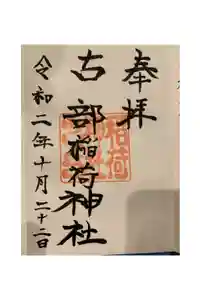 奉拝
古部稲荷神社
令和二年十月二十二日